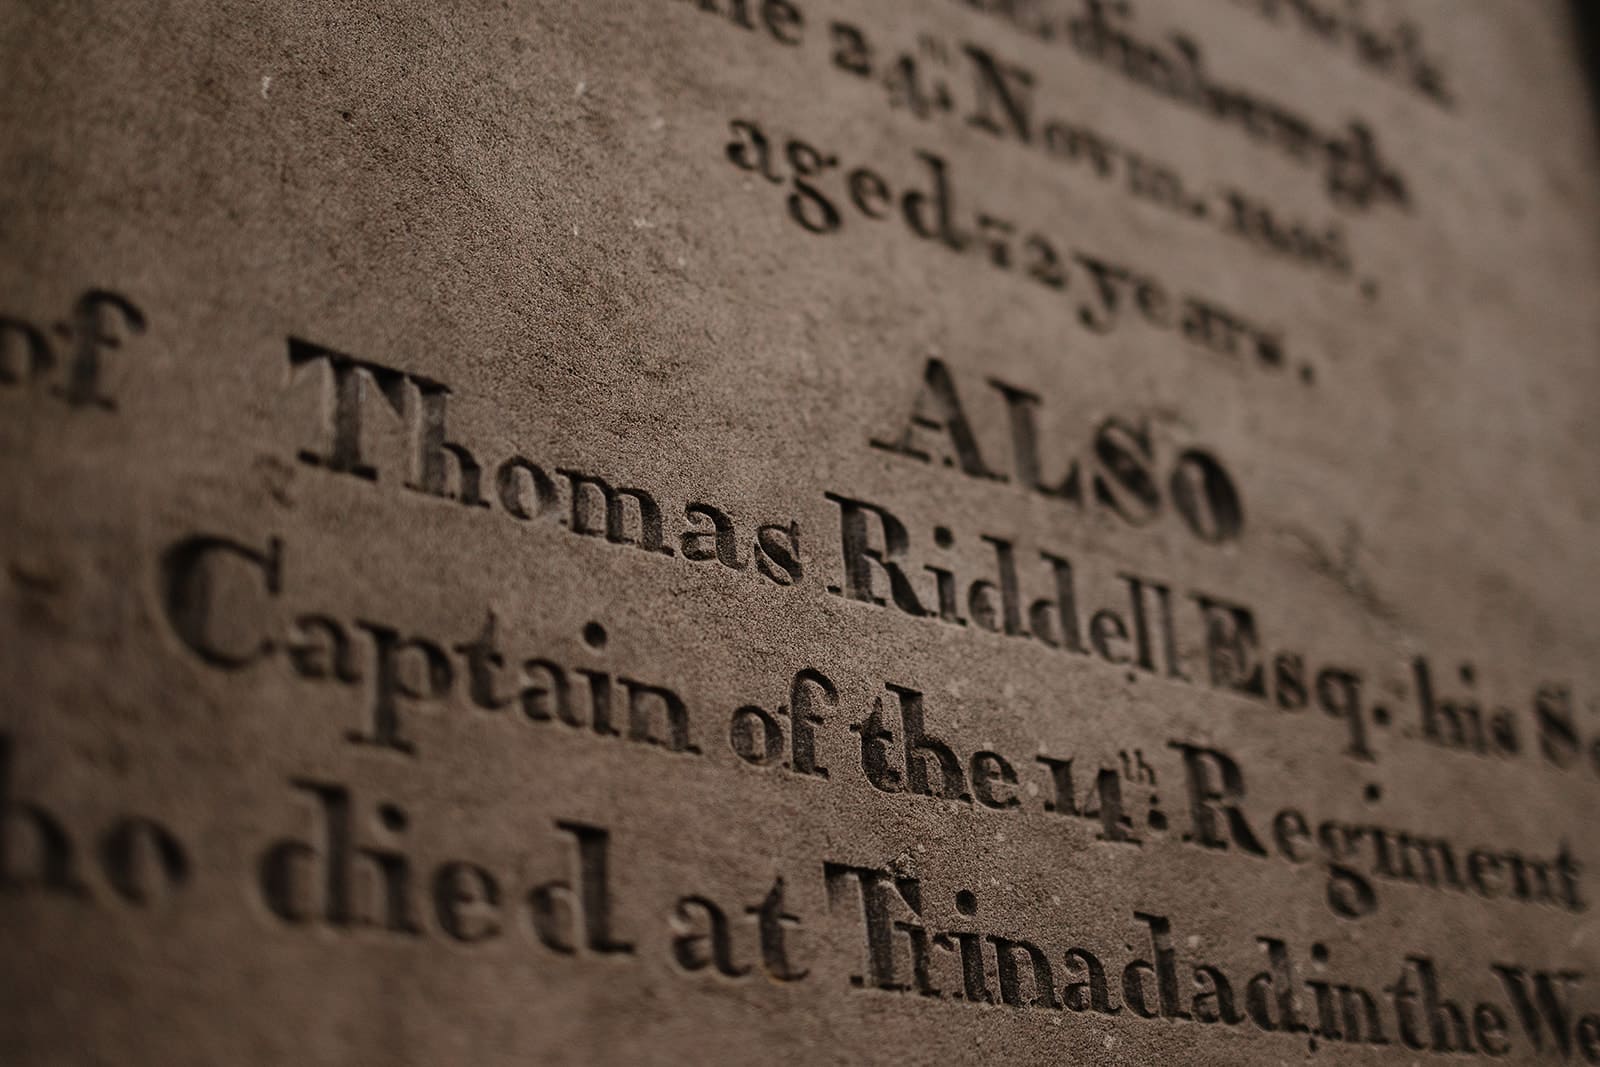 Edinburgh
24th Novm.
aged 72 years.
ALSO
of Thomas Riddell Esq. his S
Captain of the 14th: Regiment
ho died at Trinadad in the We